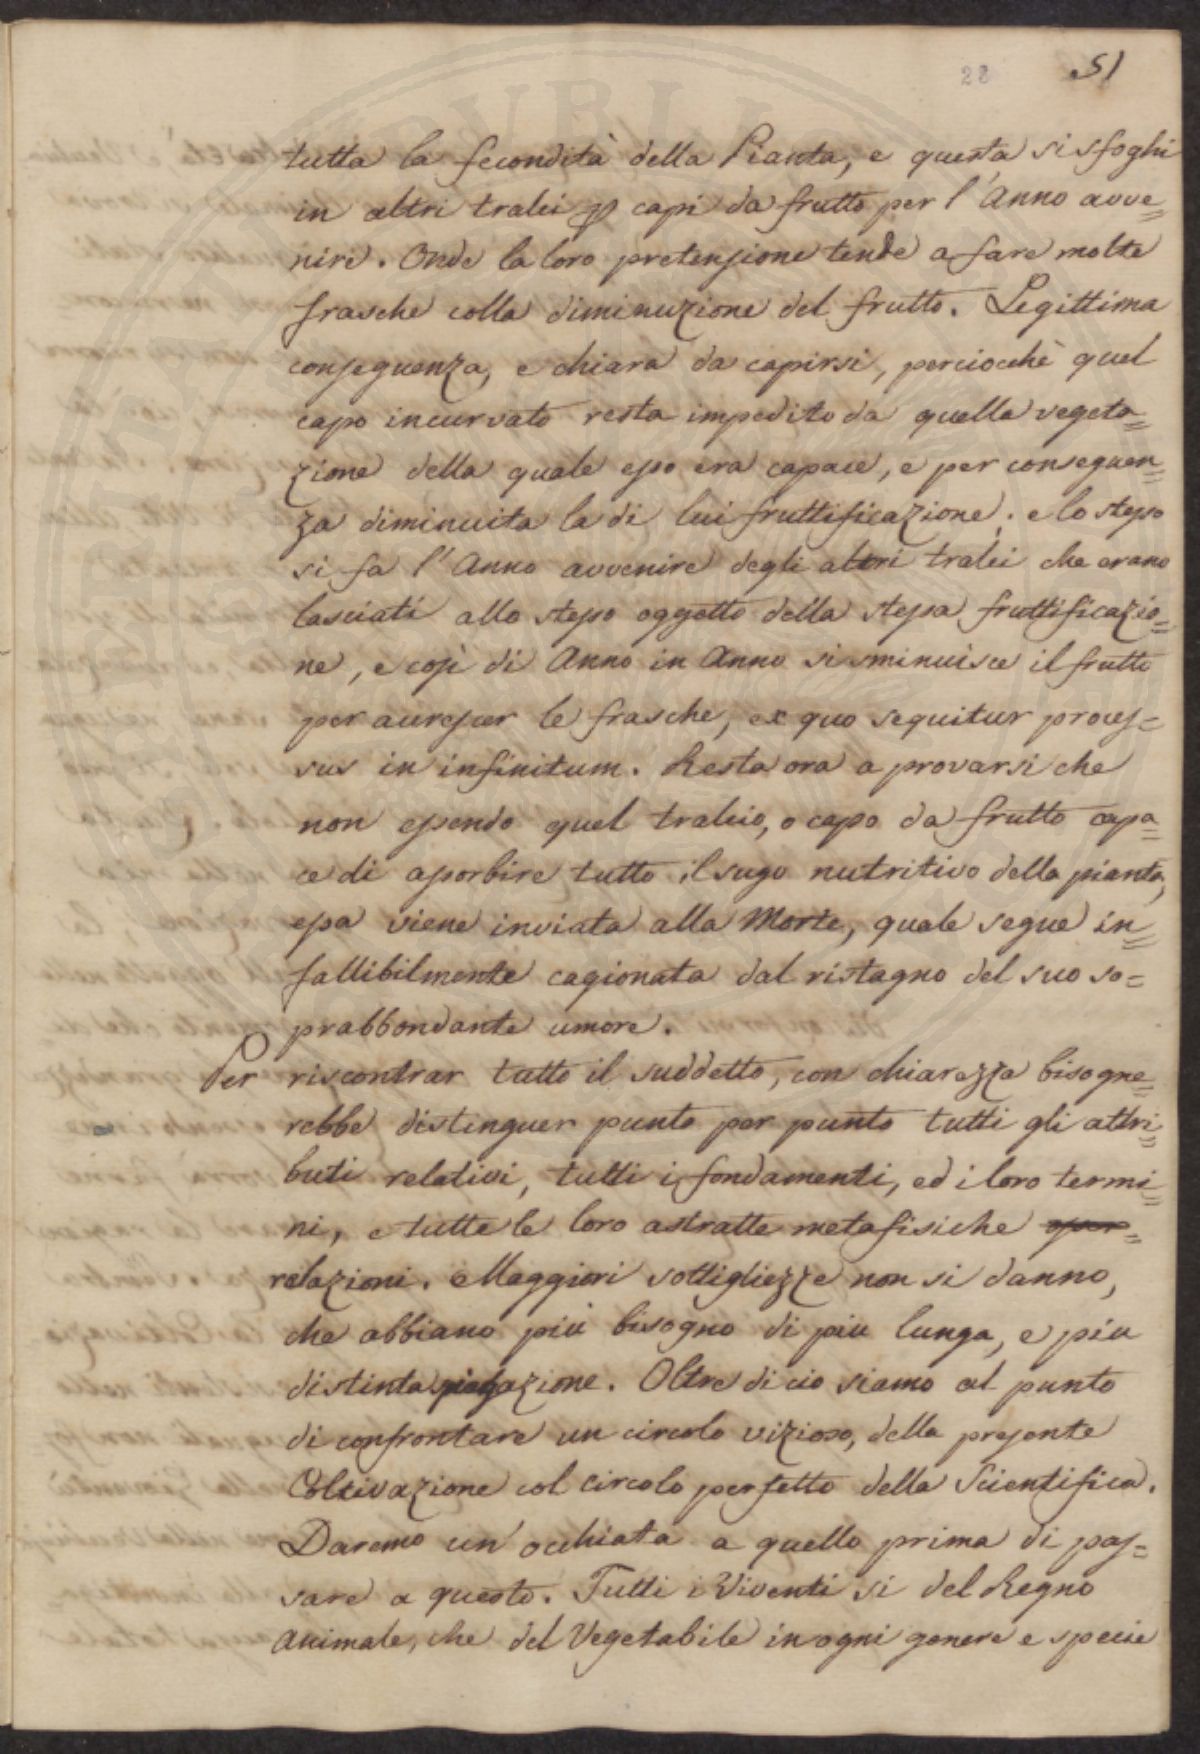 28 51
tutta la fecondità della Pianta, e questa si sfoghi
in altri tralci per capi da frutto per l'Anno avve=
nire. Onde la loro pretensione tende a fare molte
frasche colla diminuzione del frutto. Legittima
conseguenza, e chiara da capirsi, perciocchè quel
capo incurvato resta impedito da quella vegeta=
zione della quale esso era capace, e per conseguen=
za diminuita la di lui fruttificazione; e lo stesso
si fa l'Anno avvenire degli altri tralci che erano
lasciati allo stesso oggetto della stessa fruttificazio=
ne, e così di Anno in Anno si sminuisce il frutto
per acrescer le frasche, ex quo sequitur proces=
sus in infinitum. Resta ora a provarsi che
non essendo quel tralcio, o capo da frutto capa=
ce di assorbire tutto il sugo nutritivo della pianta,
essa viene inviata alla Morte, quale segue in=
fallibilmente cagionata dal ristagno del suo so=
prabbondante umore.
Per riscontrar tutto il suddetto, con chiarezza bisogne=
rebbe distinguer punto per punto tutti gli attri=
buti relativi, tutti i fondamenti, ed i loro termi=
ni, e tutte le loro astratte metafisiche
relazioni. Maggiori sottigliezze non si danno,
che abbiano più bisogno di più lunga, e più
distinta spiegazione. Oltre di cio siamo al punto
di confrontare un circolo vizioso, della presente
Coltivazione col circolo perfetto della Scientifica.
Daremo un'occhiata a quello prima di pas=
sare a questo. Tutti i Viventi si del Regno
Animale, che del Vegetabile in ogni genere e specie